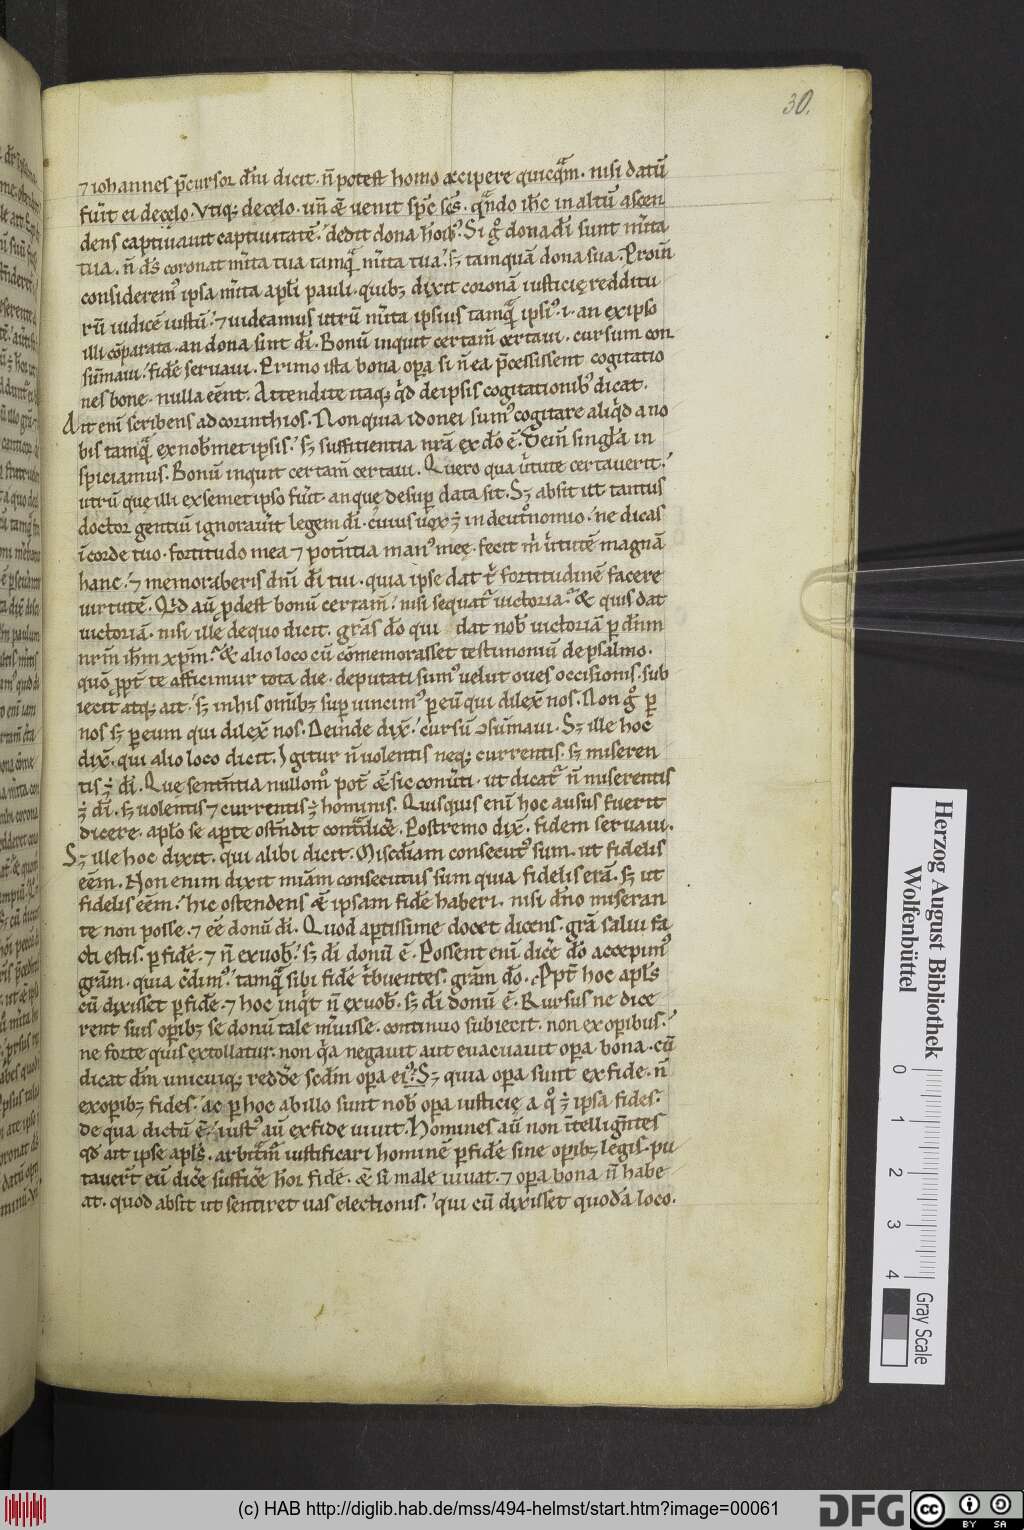 30.
⁊ iohannes p̄cursor dn̄i dicit. n̄ potest homo accipere quicq̄m. nisi datū
fuīt ei de celo. Vtiq; de celo. un̄ & uenit sp̄c sc̄s. qn̄do ih̄c in altū ascen
dens captiuauit captiuitatē. dedit dona hoib;. Si g° dona dī sunt mīta
tua. n̄ ds̄ coronat mīta tua tamq̄ mīta tua. sꝫ tamquā dona sua. Proin̄
considerem᾽ ipsa mīta apl̄i pauli. quibꝫ dixit coronā iusticię redditu
rū iudicē iustū. ⁊ uideamus utrū mīta ipsius tamq̄ ipsi᾽. i. an ex ipso
illi cōparata. an dona sint dī. Bonū inquit certam̄ certaui. cursum con
sūmaui. fidē seruaui. Primo ista bona opa si n̄ ea p̄cessissent cogitatio
nes bone. nulla eēnt. Attendite itaq; qd de ipsis cogitationib᾽ dicat.
Ait enī scribens ad corinthios. Non quia idonei sum᾽ cogitare aliqd a no
bis tamq̄ ex nobmet ipsis. sꝫ suffitientia nrā ex do ē. Dein̄ singla in
spiciamus. Bonū inquit certam̄ certaui. Quero qua ūtute certauerit.
utrū que illi ex semet ipso fuīt. an quę desup data sit. Sꝫ absit ut tantus
doctor gentiū ignorauīt legem dī. cuius uox ē in deutnomio. ne dicas
ī corde tuo. fortitudo mea ⁊ potn̄tia man᾽ meę. fecit m̄ ūtutē magnā
hanc. ⁊ memoraberis dn̄i dī tui. quia ipse dat t̄ fortitudinē facere
uirtutē. Qd aū pdest bonū certam̄. nisi sequat᾽ uictoria. & quis dat
uictoriā. nisi ille de quo dicit. grās dō qui dat nob uictoriā p dn̄m
nrm̄ ih̄m xpm̄. & alio loco cū cōmemorasset testimoniū de psalmo.
quō ppt te afficimur tota die. deputati sum᾽ uelut oues occisionis. sub
iecit atq; ait. sꝫ in his omībꝫ supuincim᾽ p eū qui dilex̄ nos. Non g° p
nos sꝫ p eum qui dilex̄ nos. Deinde dix̄. cursū ɔsūmaui. Sꝫ ille hoc
dix̄. qui alio loco dicit. Igitur n̄ uolentis neq; currentis. sꝫ miseren
tis ē dī. Que sentn̄tia nullom° pot̄ & sic conūti. ut dicat᾽ n̄ miserentis
ē dī. sꝫ uolentis ⁊ currentis ē hominis. Quisquis enī hoc ausus fuerit
dicere. aplo se apte ostn̄dit contdicē. Postremo dix̄. fidem seruaui.
Sꝫ ille hoc dixit. qui alibi dicit. Miscdiam consecut᾽ sum. ut fidelis
eēm. Non enim dixit miam consecutus sum quia fidelis erā. sꝫ ut
fidelis eēm. hic ostendens & ipsam fidē haberi. nisi dn̄o miseran
te non posse. ⁊ eē donū dī. Quod aptissime docet dicens. grā salui fa
cti estis. p fidē. ⁊ n̄ ex uob. sꝫ dī donū ē. Possent enī dicē dō accepim᾽
grām. quia cdim᾽. tamq̄ sibi fidē tbuentes. grām dō. Ppt hoc apl̄s
cū dixisset p fidē. ⁊ hoc inqt n̄ ex uob. sꝫ dī donū ē. Rursus ne dice
rent suis opibꝫ se donū tale mīuisse. continuo subiecit. non ex opibus.
ne forte quis extollatur. non qa negauit aut euacuauit opa bona. cū
dicat dm̄ unicuiq; reddē scdm opa ei᾽. Sꝫ quia opa sunt ex fide. n̄
ex opibꝫ fides. ac p hoc ab illo sunt nob opa iusticię a q° ē ipsa fides.
de qua dictū ē. iust᾽ aū ex fide uiuit. Homines aū non ītelligntes
qd ait ipse apl̄s. arbitm̄ iustificari hominē p fidē sine opibꝫ legis. pu
tauert eū dicē sufficē hōi fidē. & si male uiuat. ⁊ opa bona n̄ habe
at. quod absit ut sentiret uas electionis. qui cū dixisset quodā loco.
Herzog August Bibliothek
Wolfenbüttel
0 1 2 3 4
Gray Scale
(c) HAB http://diglib.hab.de/mss/494-helmst/start.htm?image=00061
DFG
cc BY SA